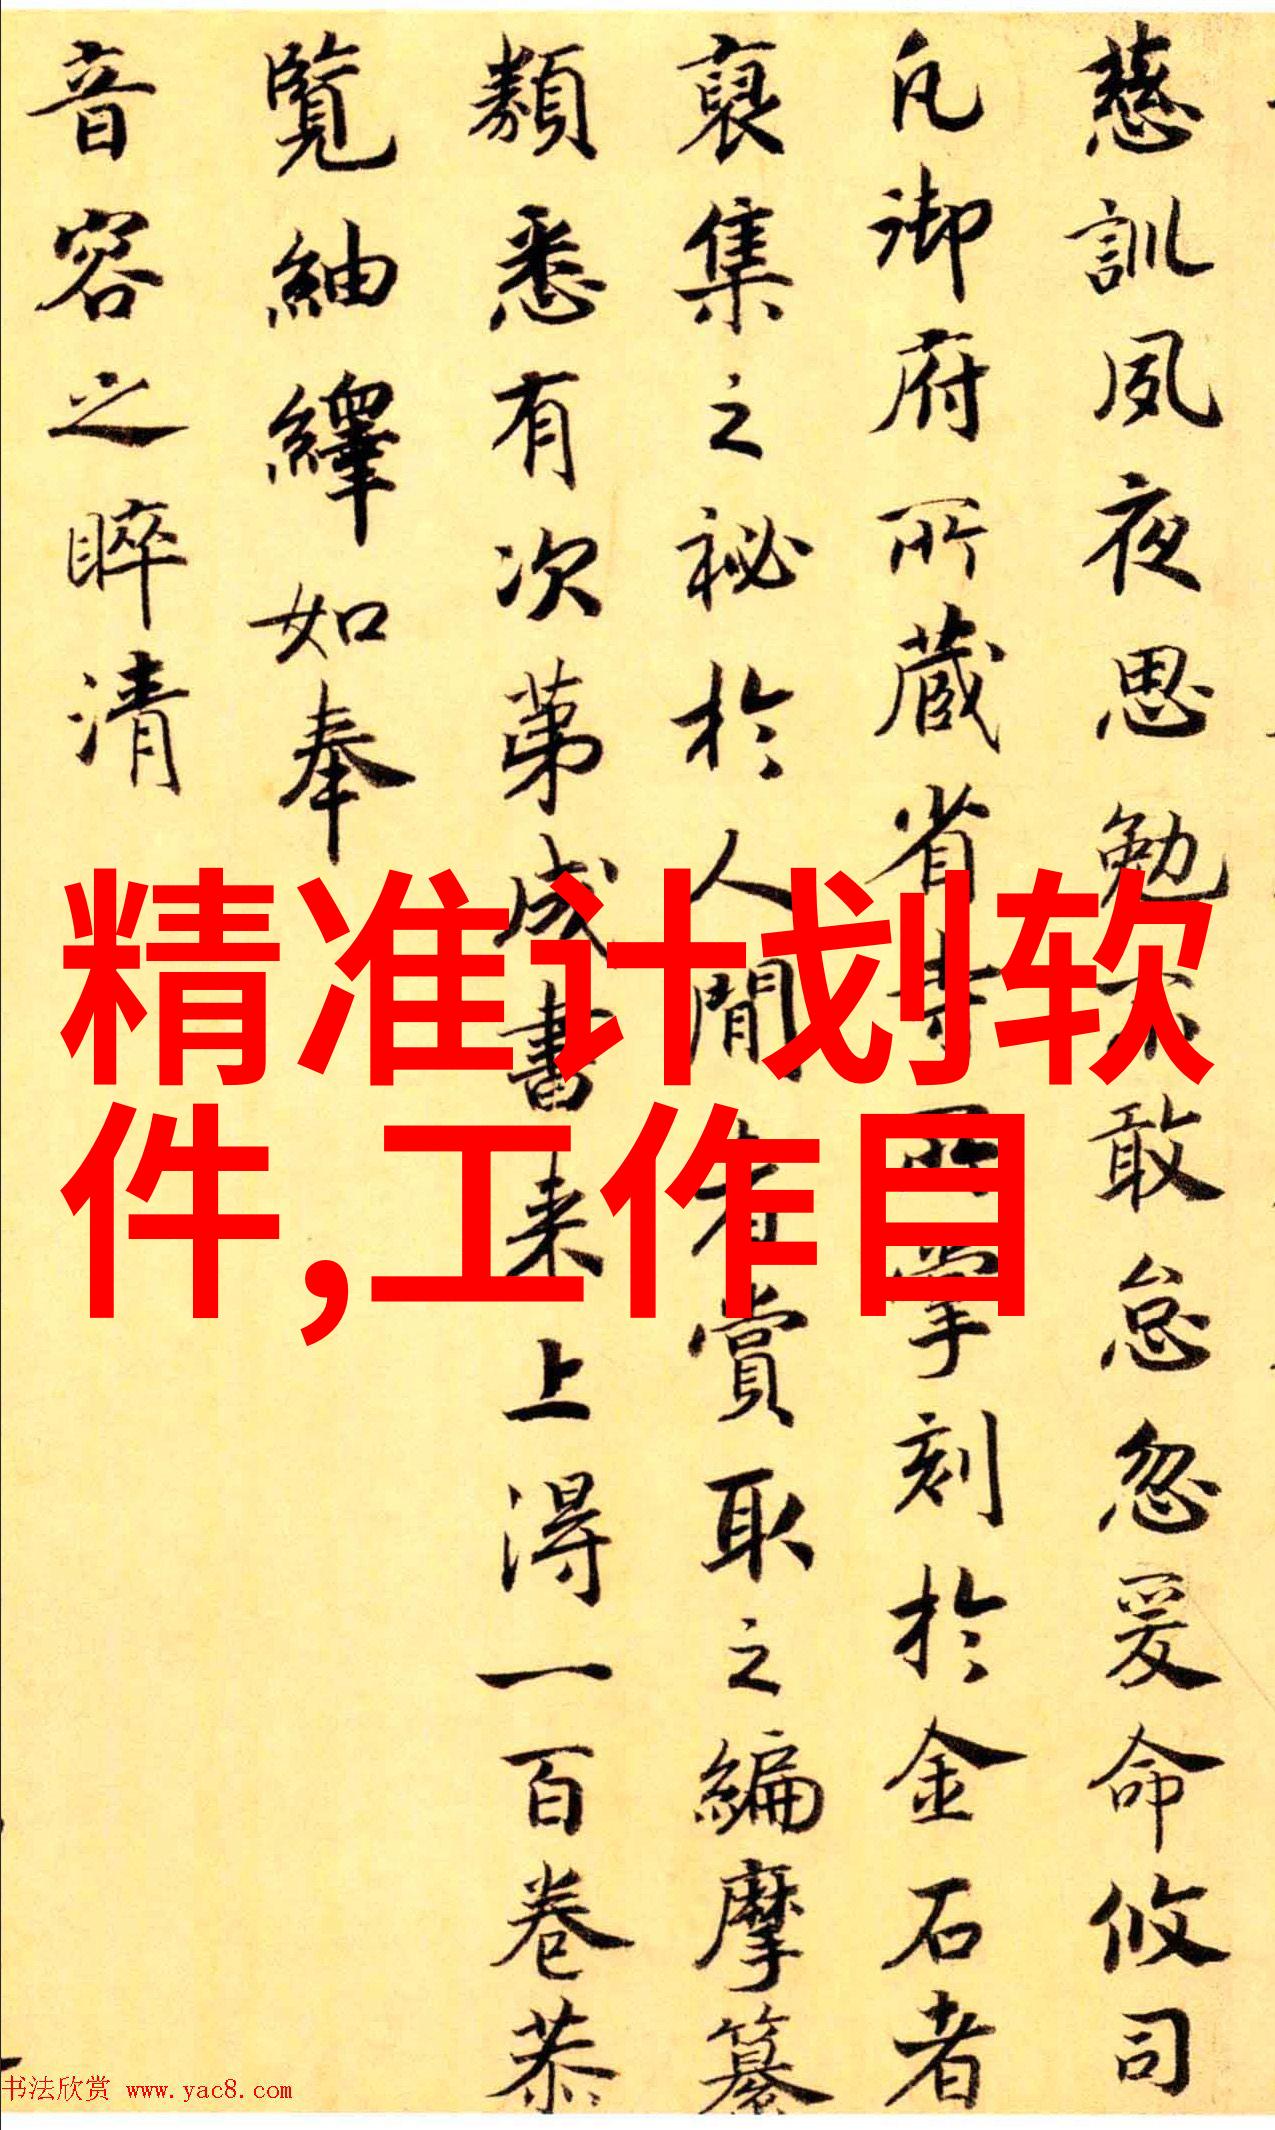 慈訓夙夜思勉不敢怠忽爰命攸司
凡御府所蔵省寺所掌刻於金石者
裒集之祕於人間者賞取之編摩纂
類悉有次第成書来上得一百卷恭
覽紬繹如奉
音容之睟清
精准计划软
件,工作目
书法欣赏 www.yac8.com